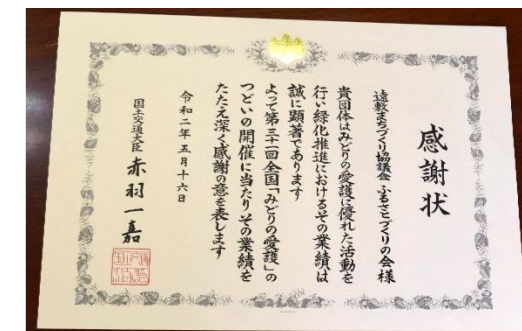 感謝状
遠敷まちづくり協議会 ふるさとづくりの会様
貴団体はみどりの愛護に優れた活動を
行い緑化推進におけるその業績は
誠に顕著であります
よって第三十一回全国「みどりの愛護」の
つどいの開催に当たりその業績を
たたえ深く感謝の意を表します
令和二年五月十六日
国土交通大臣 赤羽一嘉